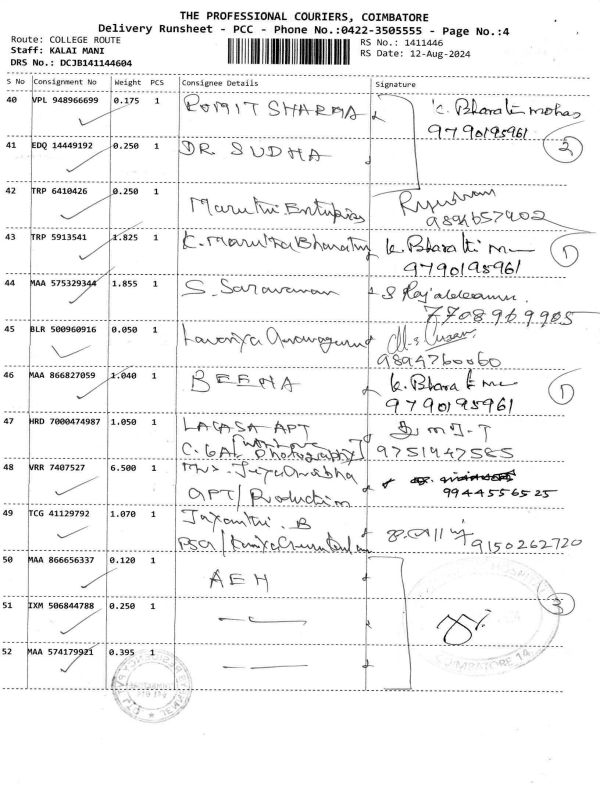 THE PROFESSIONAL COURIERS, COIMBATORE
Delivery Runsheet - PCC - Phone No.:0422-3505555 - Page No.:4
Route: COLLEGE ROUTE
Staff: KALAI MANI
DRS No.: DCJB141144604
RS No.: 1411446
RS Date: 12-Aug-2024
S No Consignment No Weight PCS Consignee Details Signature
40 VPL 948966699 0.175 1 ROMIT SHARMA K. Bharatimohan
9790195961
41 EDQ 14449192 0.250 1 DR SUDHA 2
42 TRP 6410426 0.250 1 Maruthi
9894657402
43 TRP 5913541 1.825 1 K. Bharati 1
9790195961
44 MAA 575329344 1.855 1 S. Saravanan S
7708969905
45 BLR 500960916 0.050 1 Lavanya
9894760060
46 MAA 866827059 1.040 1 BEENA K. Bharati 1
9790195961
47 HRD 7000474987 1.050 1 LAGASA APT
Photography 9751947585
48 VRR 7407527 6.500 1 Mrs.
APT/Production 9944556525
49 TCG 41129792 1.070 1 Jayanthi. B
PSG 9150262720
50 MAA 866656337 0.120 1 AEH
51 IXM 506844788 0.250 1 3
52 MAA 574179921 0.395 1
COIMBATORE 14